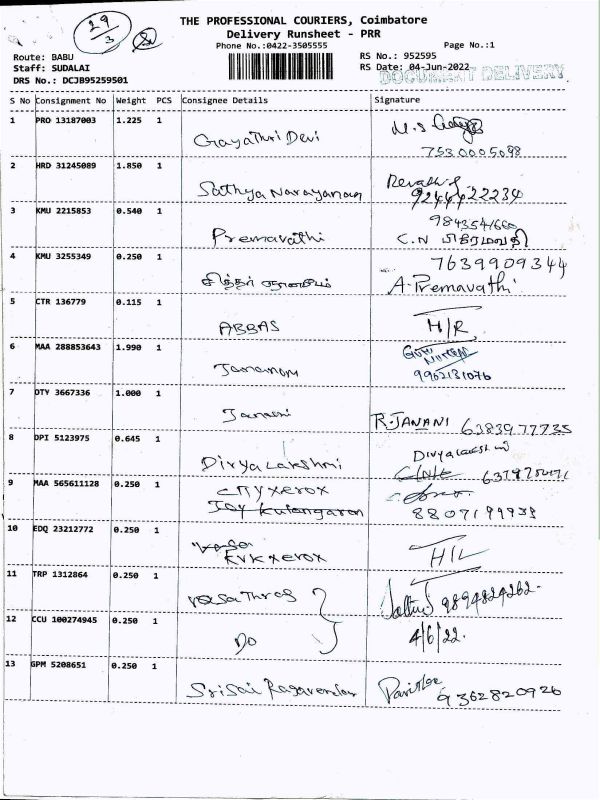 29
3
THE PROFESSIONAL COURIERS, Coimbatore
Delivery Runsheet - PRR
Phone No.:0422-3505555
Page No.:1
Route: BABU
RS No.: 952595
Staff: SUDALAI
RS Date: 04-Jun-2022
DOCUMENT DELIVERY
DRS No.: DCJB95259501
S No Consignment No Weight PCS Consignee Details Signature
1 PRO 13187003 1.225 1
Gayathri Devi
7530005098
2 HRD 31245089 1.850 1
Sathya Narayanan
9244422234
3 KMU 2215853 0.540 1
9843541660
Premavathi C.N பிரேமவதி
4 KMU 3255349 0.250 1
7639909344
A. Premavathi
5 CTR 136779 0.115 1
ABBAS H/R
6 MAA 288853643 1.990 1
9962131076
7 DTY 3667336 1.000 1
Janani R. JANANI 6383977735
8 DPI 5123975 0.645 1
Divyalakshmi
Divyalakshmi
9 MAA 565611128 0.250 1
City xerox
8807199939
10 EDQ 23212772 0.250 1
KVK xerox H/L
11 TRP 1312864 0.250 1
9894824262
12 CCU 100274945 0.250 1
Do 4/6/22.
13 GPM 5208651 0.250 1
Sri Sai Ragavendar
9362820926